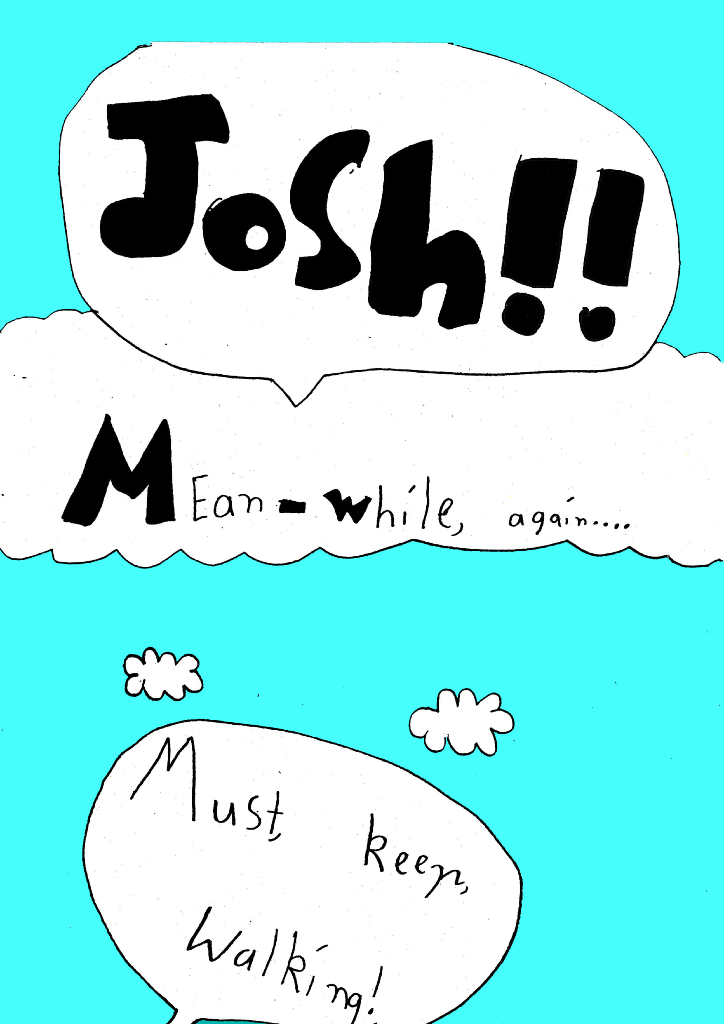 Josh!!
MEan-while, again....
Must, keep,
Walking!